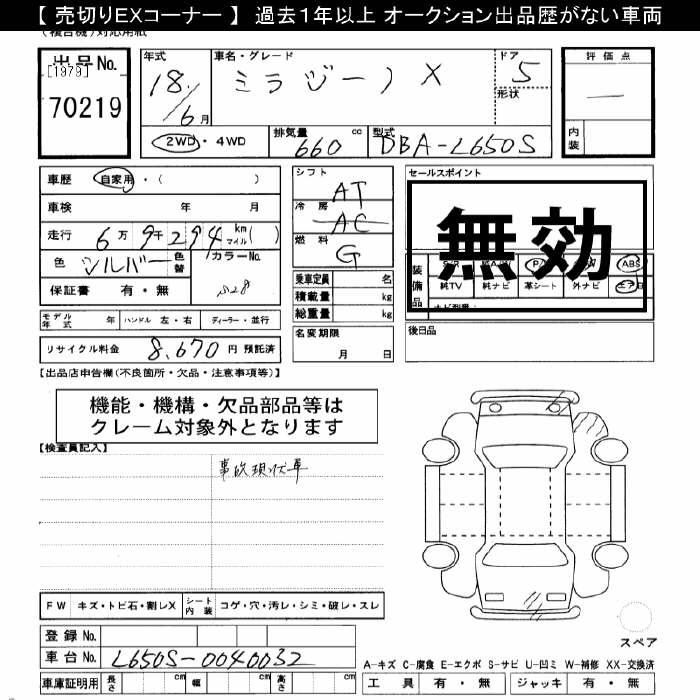 【 売切りEXコーナー 】 過去１年以上 オークション出品歴がない車両
(複合機)対応用紙
出品No.
[1979]
70219
年式
18/6月
2WD・4WD
車名・グレード
ミラジーノ X
ドア
5
形状
排気量
660 cc
型式
DBA-L650S
評価点
内装
車歴 自家用・( )
車検 年 月
走行 6万 9千 294 km マイル( )
色 シルバー 色替
カラーNo.
S28
保証書 有・無
モデル年式 年 ハンドル 左・右 ディーラー・並行
リサイクル料金 8,670 円 預託済
シフト
AT
冷房
AC
燃料
G
乗車定員 名
積載量 kg
総重量 kg
名変期限
月 日
セールスポイント
無効
装備品
ABS
純TV 純ナビ 革シート 外ナビ エアB
後日品
【出品店申告欄(不良箇所・欠品・注意事項等)】
機能・機構・欠品部品等は
クレーム対象外となります
【検査員記入】
事故現状車
FW キズ・トビ石・割レX シート内装 コゲ・穴・汚レ・シミ・破レ・スレ
登録No.
車台No. L650S-0040032
車庫証明用 長さ cm 幅 cm 高さ cm
スペア
A-キズ C-腐食 E-エクボ S-サビ U-凹ミ W-補修 XX-交換済
工具 有・無 ジャッキ 有・無